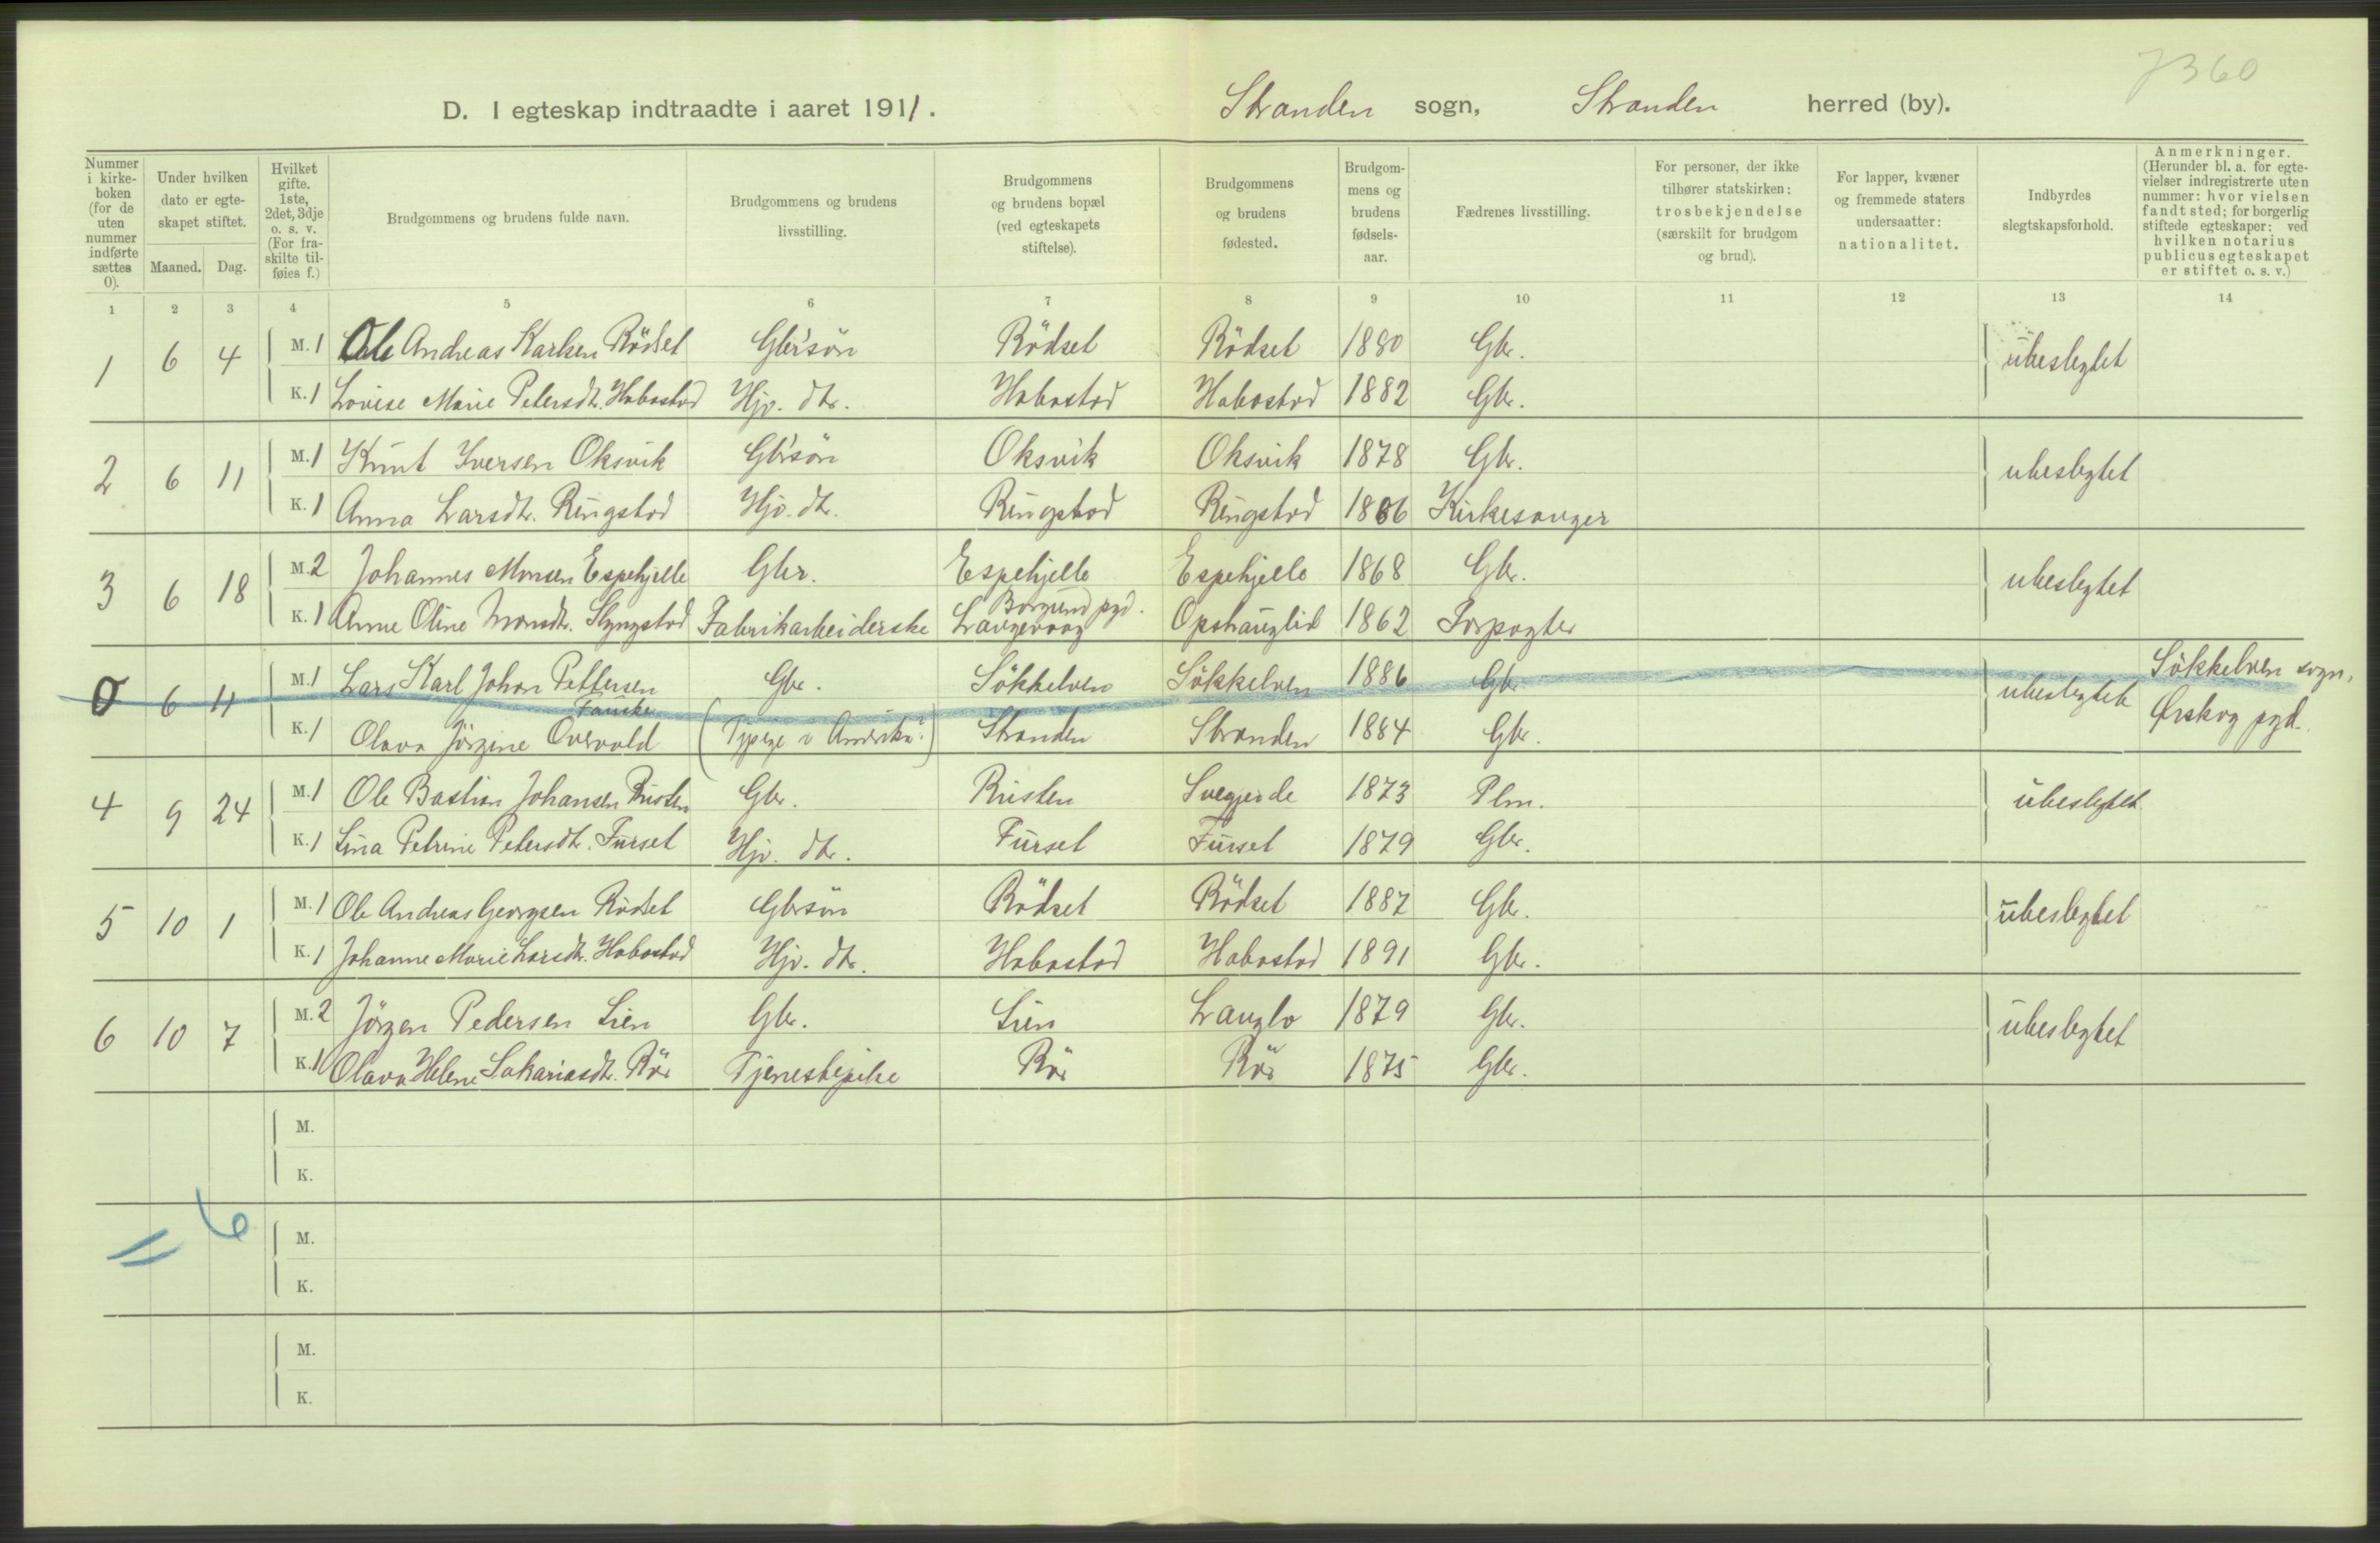 7360
D. I egteskap indtraadte i aaret 1911. Stranden sogn, Stranden herred (by).
Nummer i kirkeboken (for de uten nummer indførte sættes 0).
Under hvilken dato er egteskapet stiftet.
Maaned. Dag.
Hvilket gifte. 1ste, 2det, 3dje o. s. v. (For fraskilte tilføies f.)
Brudgommens og brudens fulde navn.
Brudgommens og brudens livsstilling.
Brudgommens og brudens bopæl (ved egteskapets stiftelse).
Brudgommens og brudens fødested.
Brudgommens og brudens fødselsaar.
Fædrenes livsstilling.
For personer, der ikke tilhører statskirken: trosbekjendelse (særskilt for brudgom og brud).
For lapper, kvæner og fremmede staters undersaatter: nationalitet.
Indbyrdes slegtskapsforhold.
Anmerkninger. (Herunder bl. a. for egtevielser indregistrerte uten nummer: hvor vielsen fandt sted; for borgerlig stiftede egteskaper: ved hvilken notarius publicus egteskapet er stiftet o. s. v.)
1 2 3 4 5 6 7 8 9 10 11 12 13 14
1 6 4 M. 1 Ole Andreas Karlsen Rödset Gbr'sön Rödset Rödset 1880 Gbr. ubeslegtet
K. 1 Lovise Marie Petersdtr. Habostad Hjv. dtr. Habostad Habostad 1882 Gbr.
2 6 11 M. 1 Knut Iversen Oksvik Gb'rsön Oksvik Oksvik 1878 Gbr. ubeslegtet
K. 1 Anna Larsdtr. Ringstad Hjv. dtr. Ringstad Ringstad 1886 Kirkesanger
3 6 18 M. 2 Johannes Monsen Espehjelle Gbr. Espehjelle Espehjelle 1868 Gbr. ubeslegtet
K. 1 Anne Oline Ivarsdtr. Slyngstad Fabrikarbeiderske Langevaag Borgund pgd. Opshauglid 1862 Forpagter
0 6 4 M. 1 Lars Karl Johan Pettersen Gbr. Sökkelven Sökkelven 1886 Gbr. ubeslegtet Sökkelven sogn,
Fauske
K. 1 Olava Jörgine Overvold (Tjpige i Amerika?) Stranden Stranden 1884 Gbr. Ørskog pgd.
4 9 24 M. 1 Ole Bastian Johansen Rusten Gbr. Rusten Svegjerde 1873 Plm. ubeslegtet
K. 1 Lina Petrine Petersdtr. Furset Hjv. dtr. Furset Furset 1879 Gbr.
5 10 1 M. 1 Ole Andreas Georgsen Rödset Gbrsön Rödset Rödset 1887 Gbr. ubeslegtet
K. 1 Johanne Marie Larsdtr. Habostad Hjv. dtr. Habostad Habostad 1891 Gbr.
6 10 7 M. 2 Jörgen Pedersen Lien Gbr. Lien Langlo 1879 Gbr. ubeslegtet
K. 1 Olava Helene Sakariasdtr. Rör Tjenestepike Rör Rör 1875 Gbr.
M.
K.
6
M.
K.
M.
K.